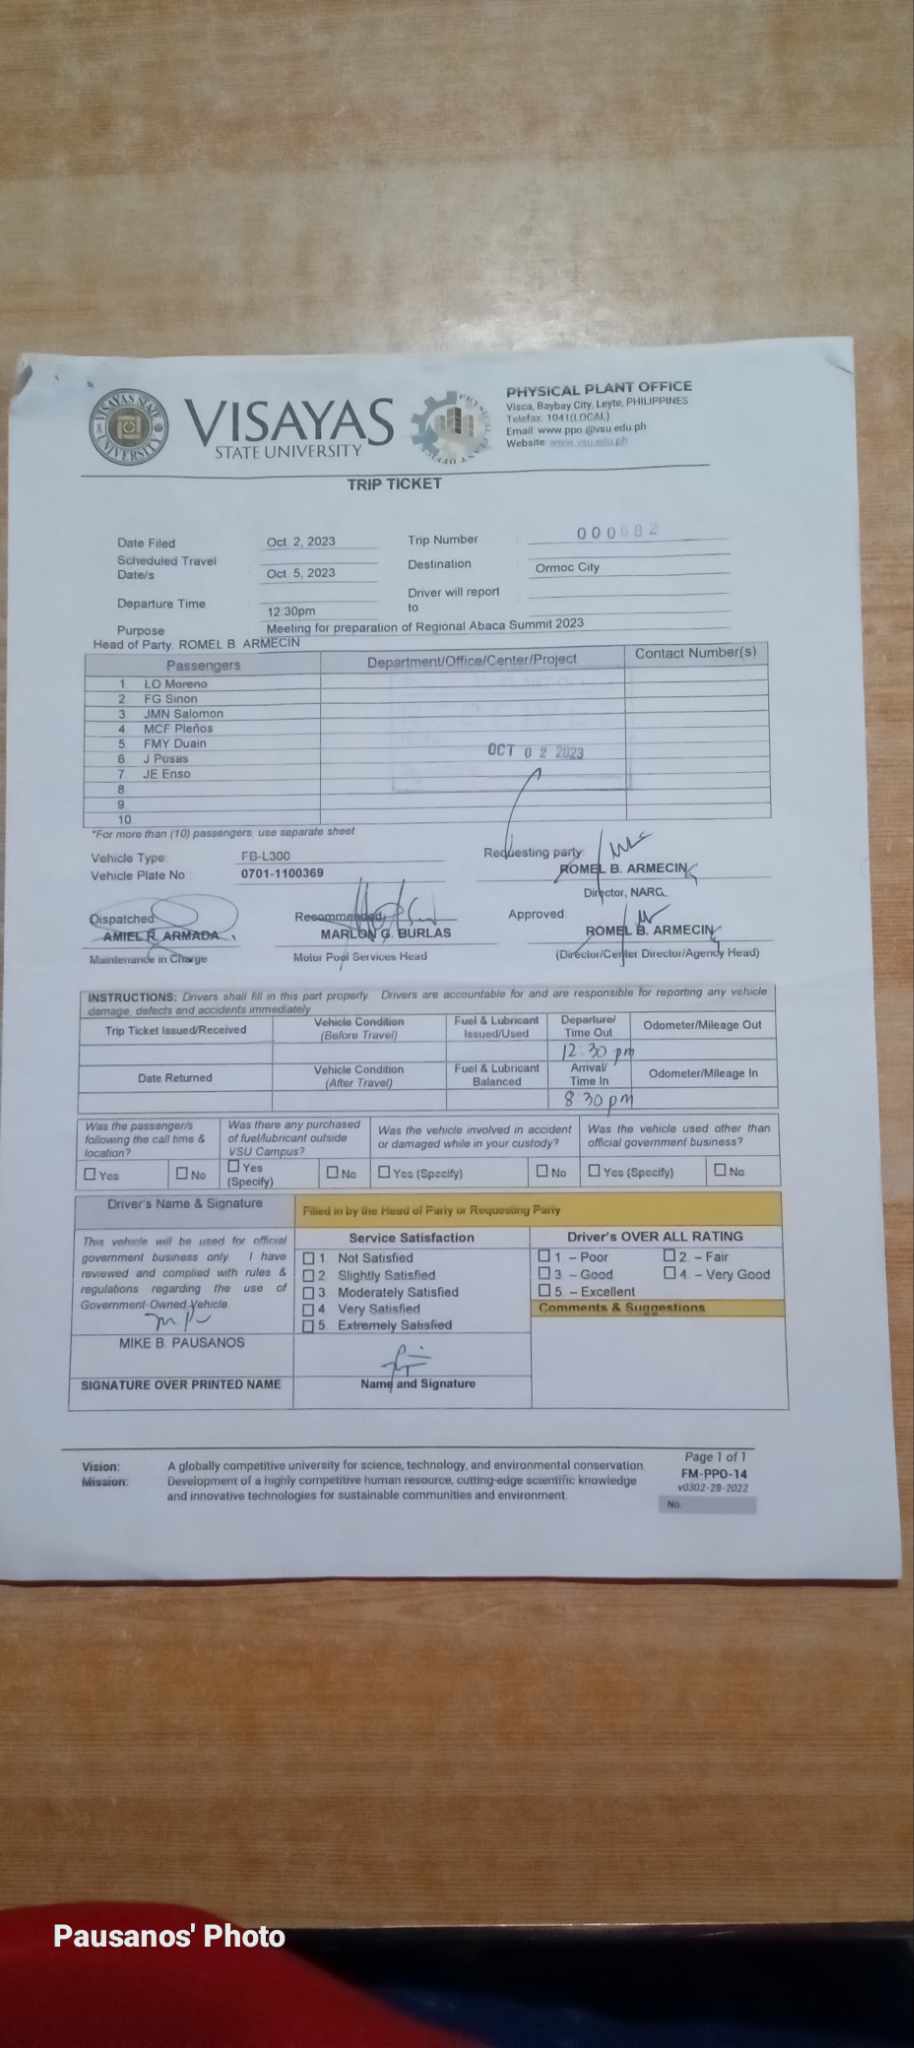 VISAYAS
STATE UNIVERSITY
PHYSICAL PLANT OFFICE
Visca, Baybay City, Leyte, PHILIPPINES
Telefax: 1041(LOCAL)
Email: www.ppo.@vsu.edu.ph
Website: www.vsu.edu.ph
TRIP TICKET
Date Filed Oct. 2, 2023 Trip Number 000682
Scheduled Travel Date/s Oct. 5, 2023 Destination Ormoc City
Departure Time 12:30pm Driver will report to
Purpose Meeting for preparation of Regional Abaca Summit 2023
Head of Party: ROMEL B. ARMECIN
Passengers Department/Office/Center/Project Contact Number(s)
1 LO Moreno
2 FG Sinon
3 JMN Salomon
4 MCF Pleños
5 FMY Duain
6 J Posas
7 JE Enso
8
9
10
OCT 02 2023
*For more than (10) passengers, use separate sheet
Vehicle Type: FB-L300 Requesting party:
Vehicle Plate No.: 0701-1100369 ROMEL B. ARMECIN
Director, NARC
Dispatched: Recommended: Approved:
AMIEL R. ARMADA MARLON G. BURLAS ROMEL B. ARMECIN
Maintenance in Charge Motor Pool Services Head (Director/Center Director/Agency Head)
INSTRUCTIONS: Drivers shall fill in this part properly. Drivers are accountable for and are responsible for reporting any vehicle
damage, defects and accidents immediately
Trip Ticket Issued/Received Vehicle Condition (Before Travel) Fuel & Lubricant Issued/Used Departure/ Time Out Odometer/Mileage Out
12:30 pm
Date Returned Vehicle Condition (After Travel) Fuel & Lubricant Balanced Arrival/ Time In Odometer/Mileage In
8:30 pm
Was the passenger/s following the call time & location? Was there any purchased of fuel/lubricant outside VSU Campus? Was the vehicle involved in accident or damaged while in your custody? Was the vehicle used other than official government business?
Yes No Yes (Specify) No Yes (Specify) No Yes (Specify) No
Driver's Name & Signature Filled in by the Head of Party or Requesting Party
This vehicle will be used for official
government business only. I have
reviewed and complied with rules &
regulations regarding the use of
Government-Owned Vehicle.
MIKE B. PAUSANOS
SIGNATURE OVER PRINTED NAME
Service Satisfaction
1 Not Satisfied
2 Slightly Satisfied
3 Moderately Satisfied
4 Very Satisfied
5 Extremely Satisfied
Name and Signature
Driver's OVER ALL RATING
1 – Poor 2 – Fair
3 – Good 4 – Very Good
5 – Excellent
Comments & Suggestions
Vision: A globally competitive university for science, technology, and environmental conservation.
Mission: Development of a highly competitive human resource, cutting-edge scientific knowledge
and innovative technologies for sustainable communities and environment.
Page 1 of 1
FM-PPO-14
v0302-28-2022
No.
Pausanos' Photo